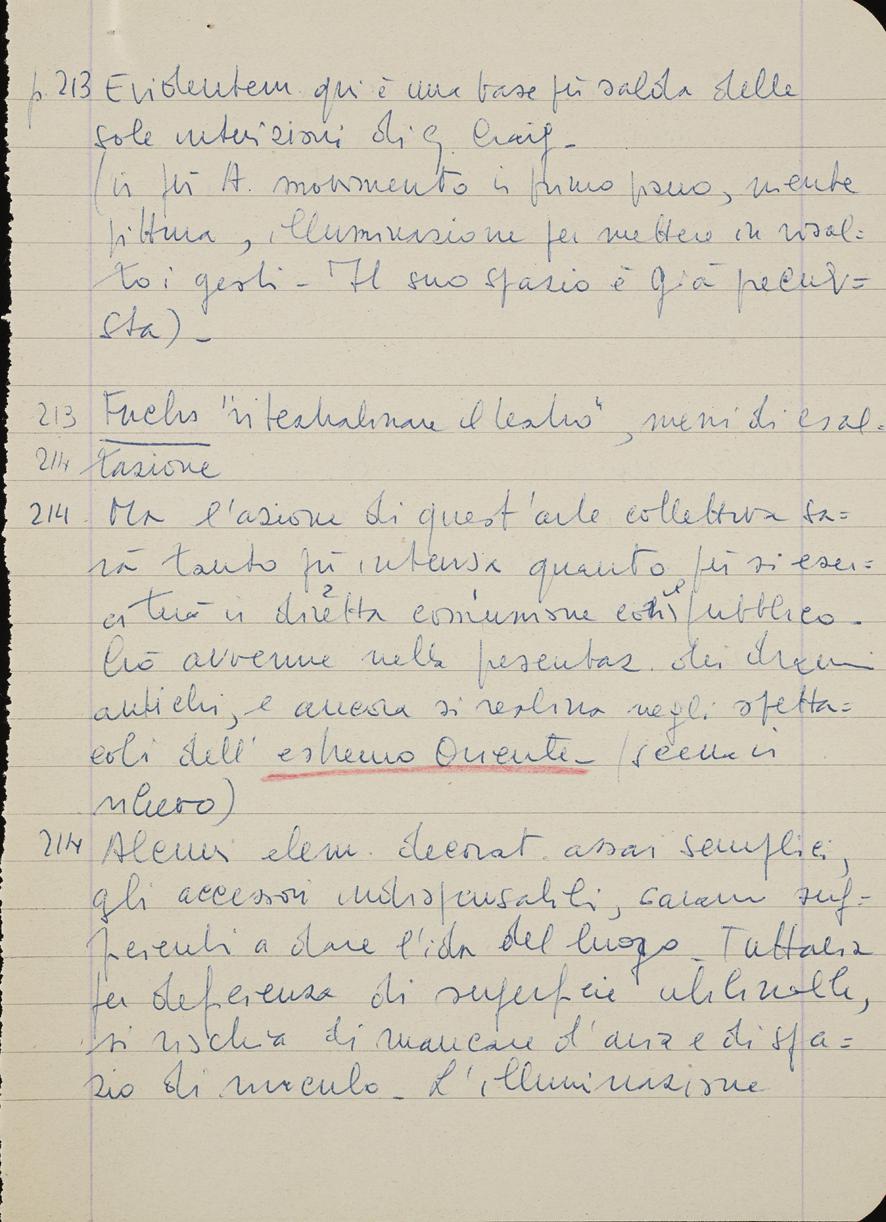 p. 213 Evidentem. qui è una base più salda delle
sole intuizioni di G. Craig -
(in più A. movimento in primo piano, niente
pittura, illuminazione per mettere in risal=
to i gesti - Il suo spazio è già
sta) -
213 Fuchs "riteatralizzare il teatro", mezzi di esal=
214 tazione
214 . Ma l'azione di quest'arte collettiva sa=
rà tanto più intensa quanto più si eser=
citerà in diretta comunione col pubblico -
Ciò avvenne nella presentaz. dei drammi
antichi, e ancora si realizza negli spetta=
coli dell'estremo Oriente - (scena in
rilievo)
214 Alcuni elem. decorat. assai semplici,
gli accessori indispensabili, saran suf=
ficienti a dare l'ida del luogo - Tuttavia
per deficienza di superficie utilizzabile,
si rischia di mancare d'aria e di spa=
zio di - L'illuminazione